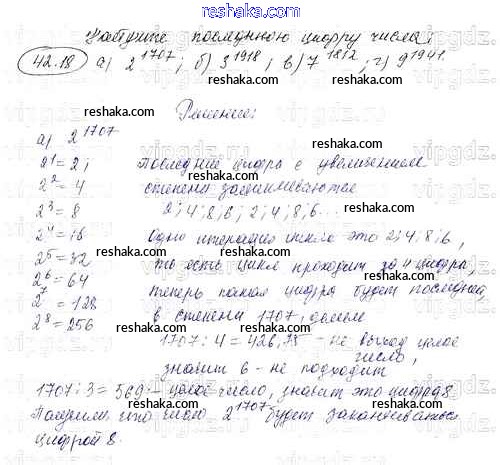 Найдите последнюю цифру числа:
42.18 а) 2^1707; б) 3^1918; в) 7^1812; г) 9^1941.
Решение:
а) 2^1707
2^1 = 2; Последние цифры с увеличением
2^2 = 4 степени зацикливаются
2^3 = 8 2; 4; 8; 6; 2; 4; 8; 6...
2^4 = 16 Одна итерация цикла это 2; 4; 8; 6,
2^5 = 32 то есть цикл проходит за 4 цифры,
2^6 = 64 теперь какая цифра будет последней,
2^7 = 128 в степени 1707, делим
2^8 = 256 1707 : 4 = 426,75 - не выход целое
число,
значит 6 - не подходит
1707 : 3 = 569 - целое число, значит это цифра 8
Получим, что число 2^1707 будет заканчиваться
цифрой 8.
reshaka.com
vipgdz.ru